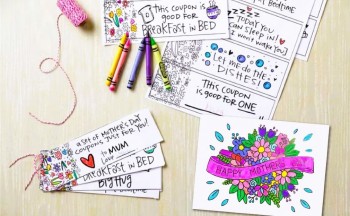 THIS COUPON IS
GOOD FOR
BREAKFAST IN BED
BEDTIME
ZZZZ
TODAY YOU
CAN SLEEP IN!
I won't wake you!
Let me do the
DISHES!
THIS COUPON
IS GOOD FOR ONE
A SET OF MOTHER'S DAY
COUPONS JUST FOR YOU!
to MUM
Love
BREAKFAST IN BED
Big Hug
HAPPY MOTHER'S